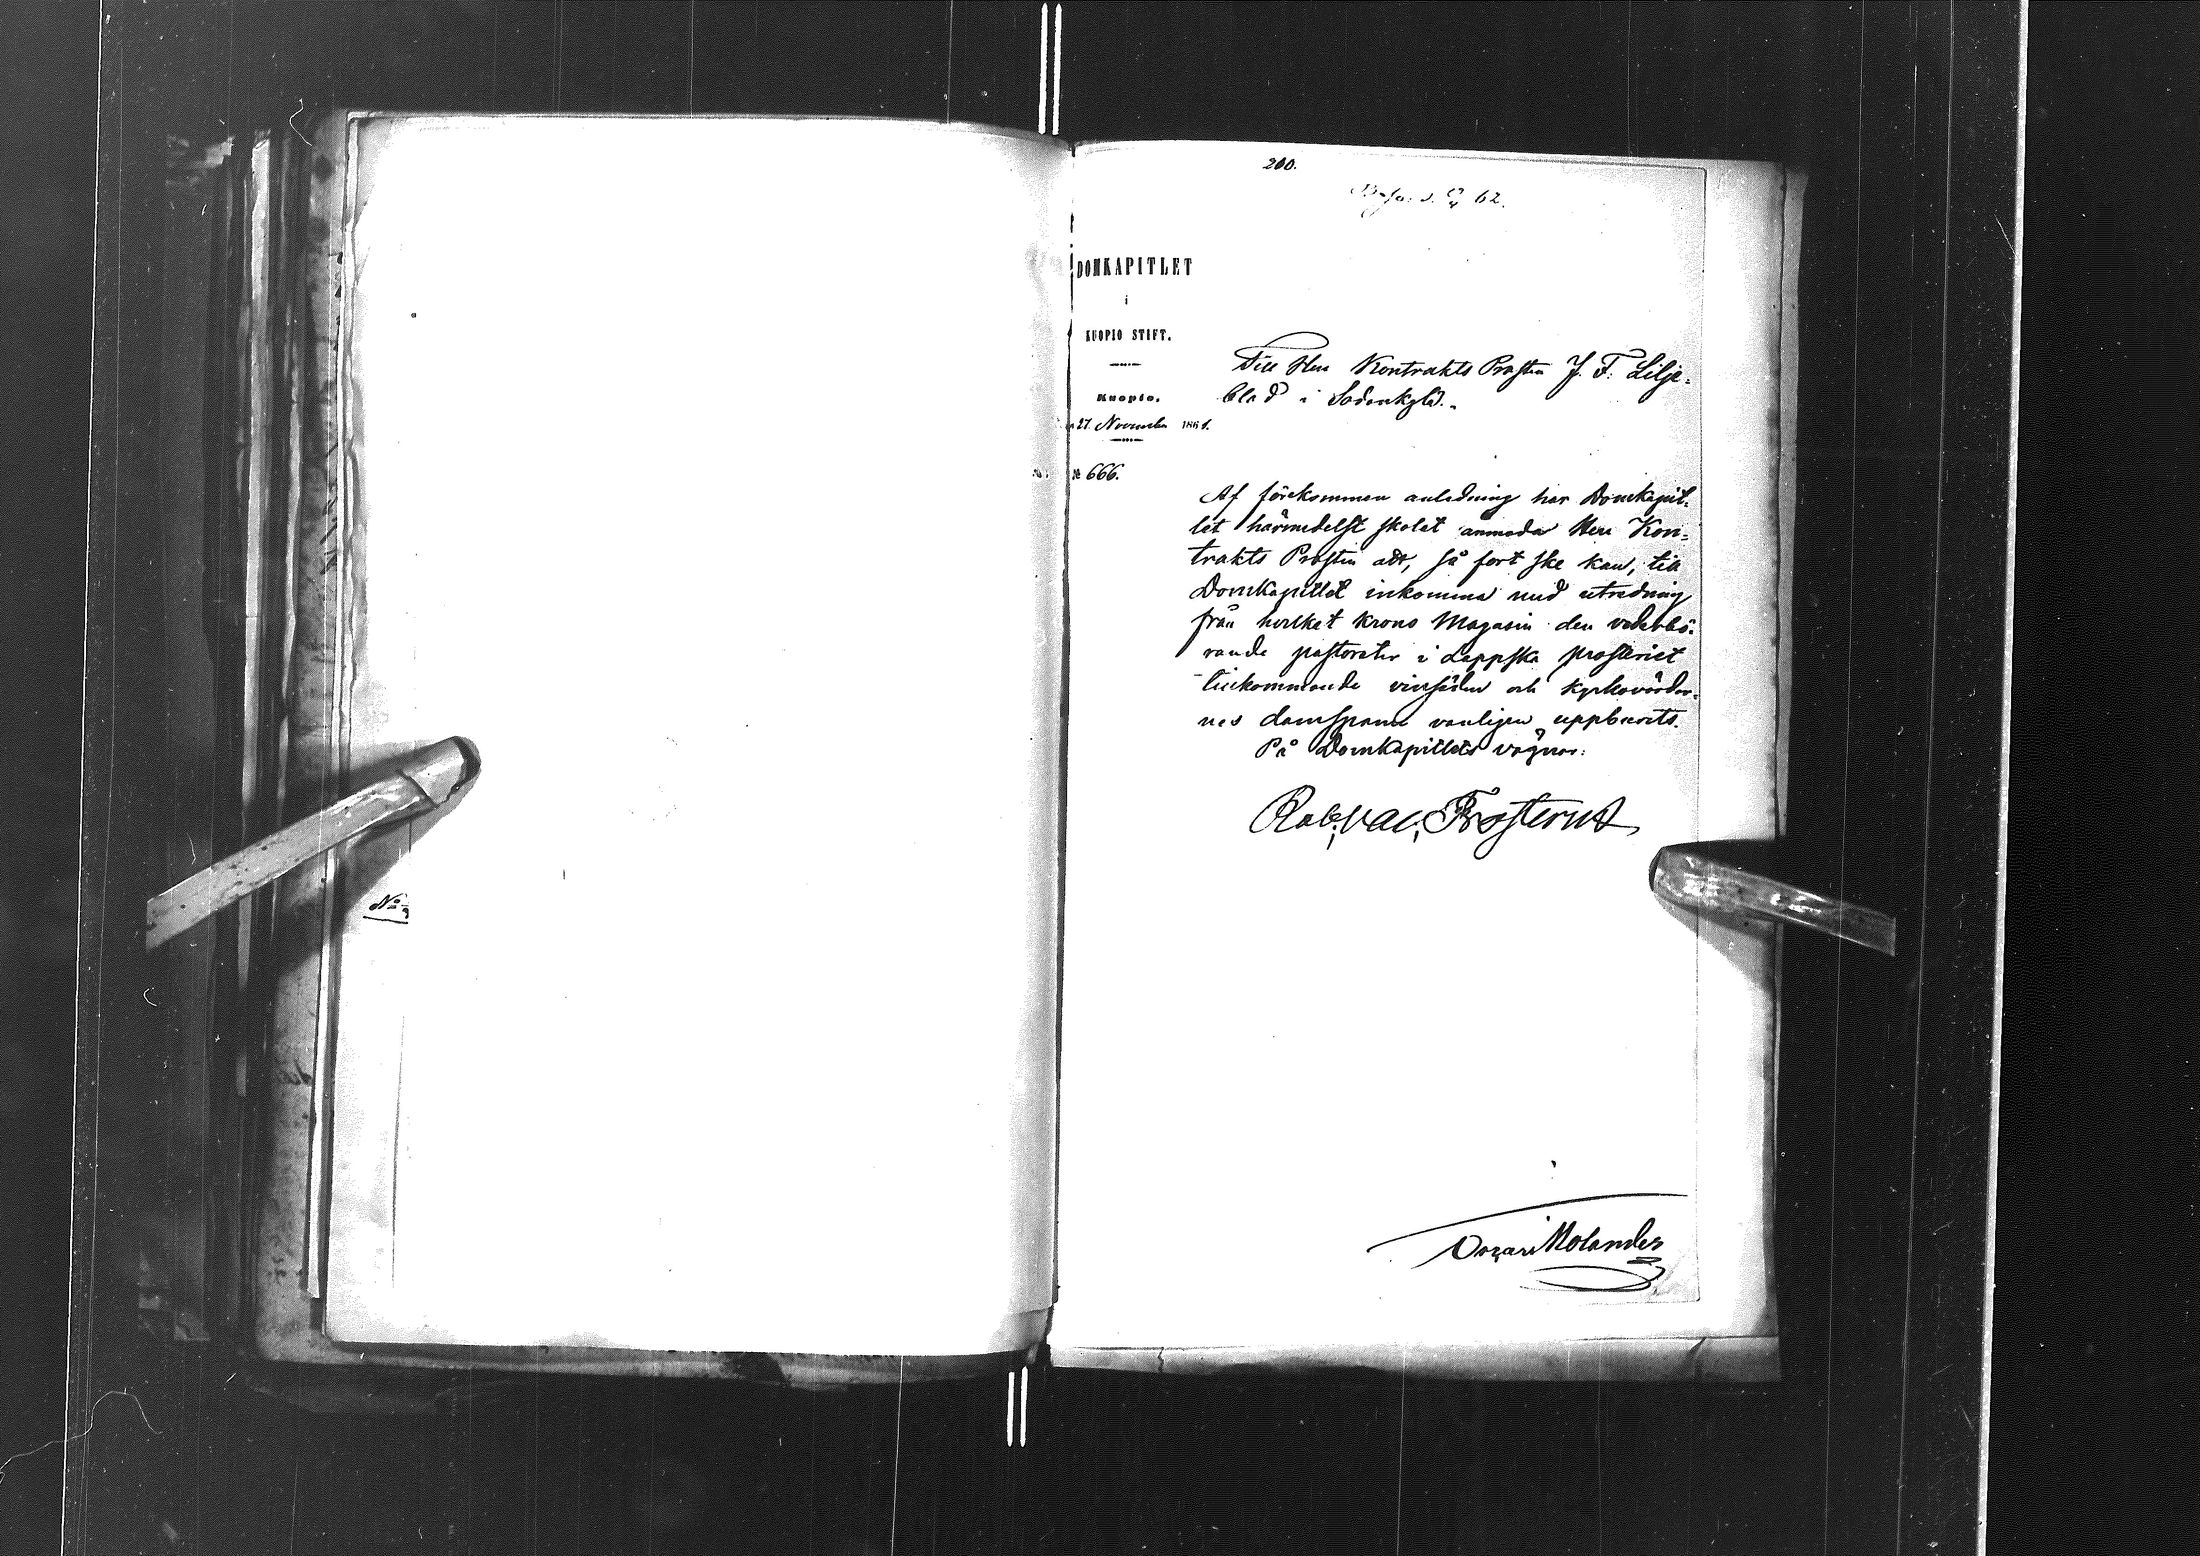 No
260.
62.
DOMKAPITLET
i
KUOPIO STIFT.
Kuopio.
27 November 1861.
№ 666.
Till Herr Kontrakts Prosten J. F. Lilje-
blad i Sodankylä.
Af förekommen anledning har Domkapit-
let härmedelst skolat anmoda Herr Kon-
trakts Prosten att, så fort ske kan, till
Domkapitlet inkomma med utredning
från hvilket Krono Magasin den vederbö-
rande pastorater i Lappska prosteriet
tillkommande vinsäden och kyrkovärdar-
nes vanligen uppburits.
På Domkapitlets vägnar:
Rob. Val. Frosterus
Oscar Molander